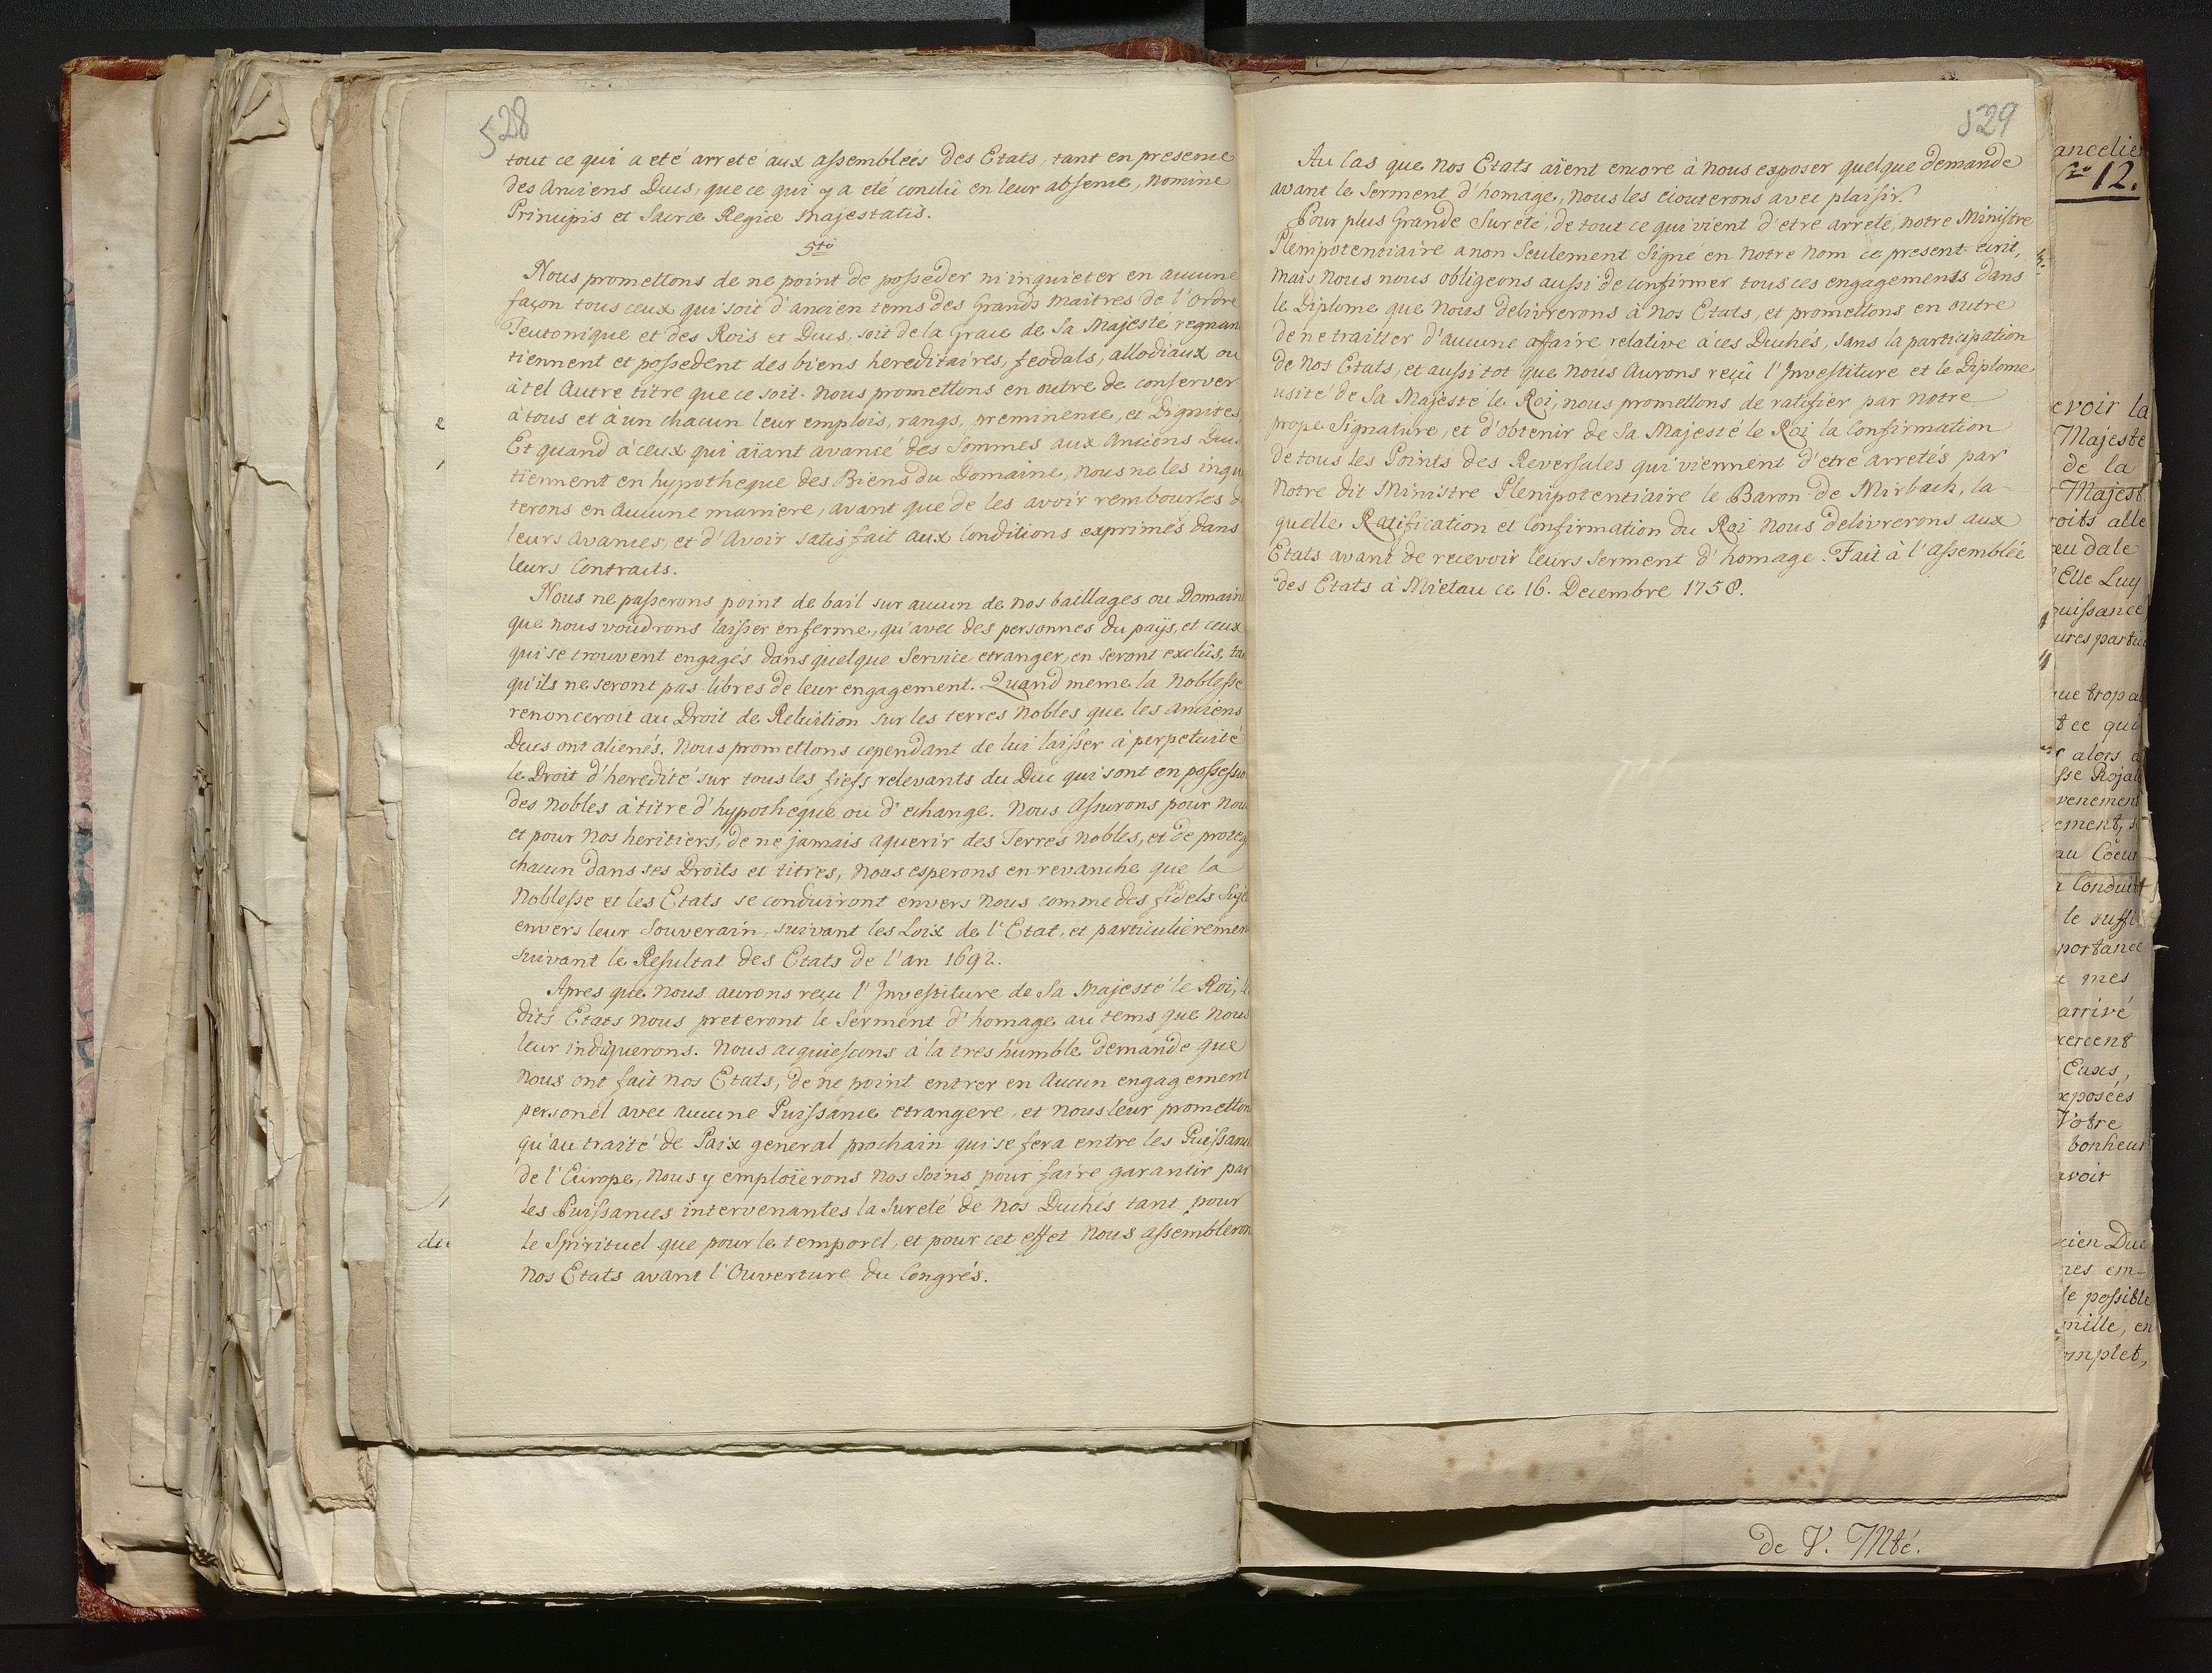 528
tout ce qui a eté arreté aux assembleés des Etats, tant en presence
des Anciens Ducs, que ce qui y a eté conclû en leur absence, nomine
Principis et Sacræ Regiæ Majestatis.
5to
Nous promettons de ne point de posseder ni inquieter en aucune
façon tous ceux qui soit d'ancien tems des Grands Maitres de l'Ordre
Teutonique et des Rois et Ducs, soit de la Grace de Sa Majesté regnan
tiennent et possedent des biens hereditaires, feodals, allodiaux ou
à tel Autre titre que ce soit. Nous promettons en outre de conserver
à tous et à un chacun leur emplois, rangs, preminence, et Dignites,
Et quand à ceux qui aïant avancé des Sommes aux Anciens Duc
tiennent en hypotheque des Biens du Domaine, nous ne les inqu
terons en Aucune maniere, avant que de les avoir rembourses d
leurs avances, et d'Avoir satisfait aux Conditions exprimés dans
leurs Contracts.
Nous ne passerons point de bail sur aucun de nos baillages ou Domain
que nous voudrons laisser en ferme, qu'avec des personnes du paÿs, et ceux
qui se trouvent engagés dans quelque Service etranger, en seront exclûs, ta
qu'ils ne seront pas libres de leur engagement. Quand meme la Noblesse
renonceroit au Droit de Reluition sur les terres Nobles que les Anciens
Ducs ont alienés. Nous promettons cependant de lui laisser à perpetuité
le Droit d'heredité sur tous les fiefs relevants du Duc qui sont en possessio
des Nobles à titre d'hypotheque ou d'echange. Nous Assurons pour Nou
et pour Nos heritiers, de ne jamais aquerir des Terres Nobles, et de proteg
chacun dans ses Droits et titres, Nous esperons en revanche que la
Noblesse et les Etats se conduiront envers Nous comme des fidels Suje
envers leur Souverain, suivant les Loix de l'Etat, et particulieremen
suivant le Resultat des Etats de l'an 1692.
Apres que Nous aurons reçu l'Investiture de Sa Majesté le Roi, le
dits Etats Nous preteront le Serment d'homage au tems que Nous
leur indiquerons. Nous acquiesçons à la tres humble demande que
Nous ont fait nos Etats, de ne point entrer en Aucun engagement
personel avec aucune Puissance etrangere, et nous leur prometton
qu'au traité de Paix general prochain qui se fera entre les Puissanc
de l'Europe, nous y emploïerons nos Soins pour faire garantir par
les Puissances intervenantes la sureté de nos Duchés tant pour
le Spirituel que pour le temporel, et pour cet effet Nous assembleron
Nos Etats avant l'Ouverture du Congrés.
e
du
529
Au Cas que Nos Etats aïent encore à nous exposer quelque demande
avant le Serment d'homage, nous les ecouterons avec plaisir.
Pour plus Grande Sureté, de tout ce qui vient d'etre arreté, notre Ministre
Plenipotentiaire a non seulement signé en Notre Nom ce present ecrit,
Mais Nous nous obligeons aussi de confirmer tous ces engagements dans
le Diplome que Nous delivrerons à Nos Etats, et promettons en outre
de ne traitter d'aucune affaire relative à ces Duchés, sans la participation
de nos Etats, et aussi tot que Nous Aurons reçû l'Investiture et le Diplome
usité de Sa Majesté le Roi, nous promettons de ratifier par Notre
prope Signature, et d'obtenir de Sa Majesté le Roi la Confirmation
de tous les Points des Reversales qui viennent d'etre arretés par
Notre dit Ministre Plenipotentiaire le Baron de Mirbach, la-
quelle Ratification et Confirmation du Roi nous delivrerons aux
Etats avant de recevoir leurs Serment d'homage. Fait à l'Assemblée
des Etats à Mietau ce 16. Decembre 1758.
ancelier
12.
evoir la
Majesté
de la
Majest
roits alle
eudale
Elle Luy
uissance
ures partic
ue trop a
t ce qui
alors a
sse Rojal
venement
ement, s
au Coeur
Conduit
le suffi
portance
mes
arrivé
xercent
Eaux,
xposées
Votre
bonheur
avoir
cien Duc
res em-
le possible
mille, en
omplet,
de V. Mté.